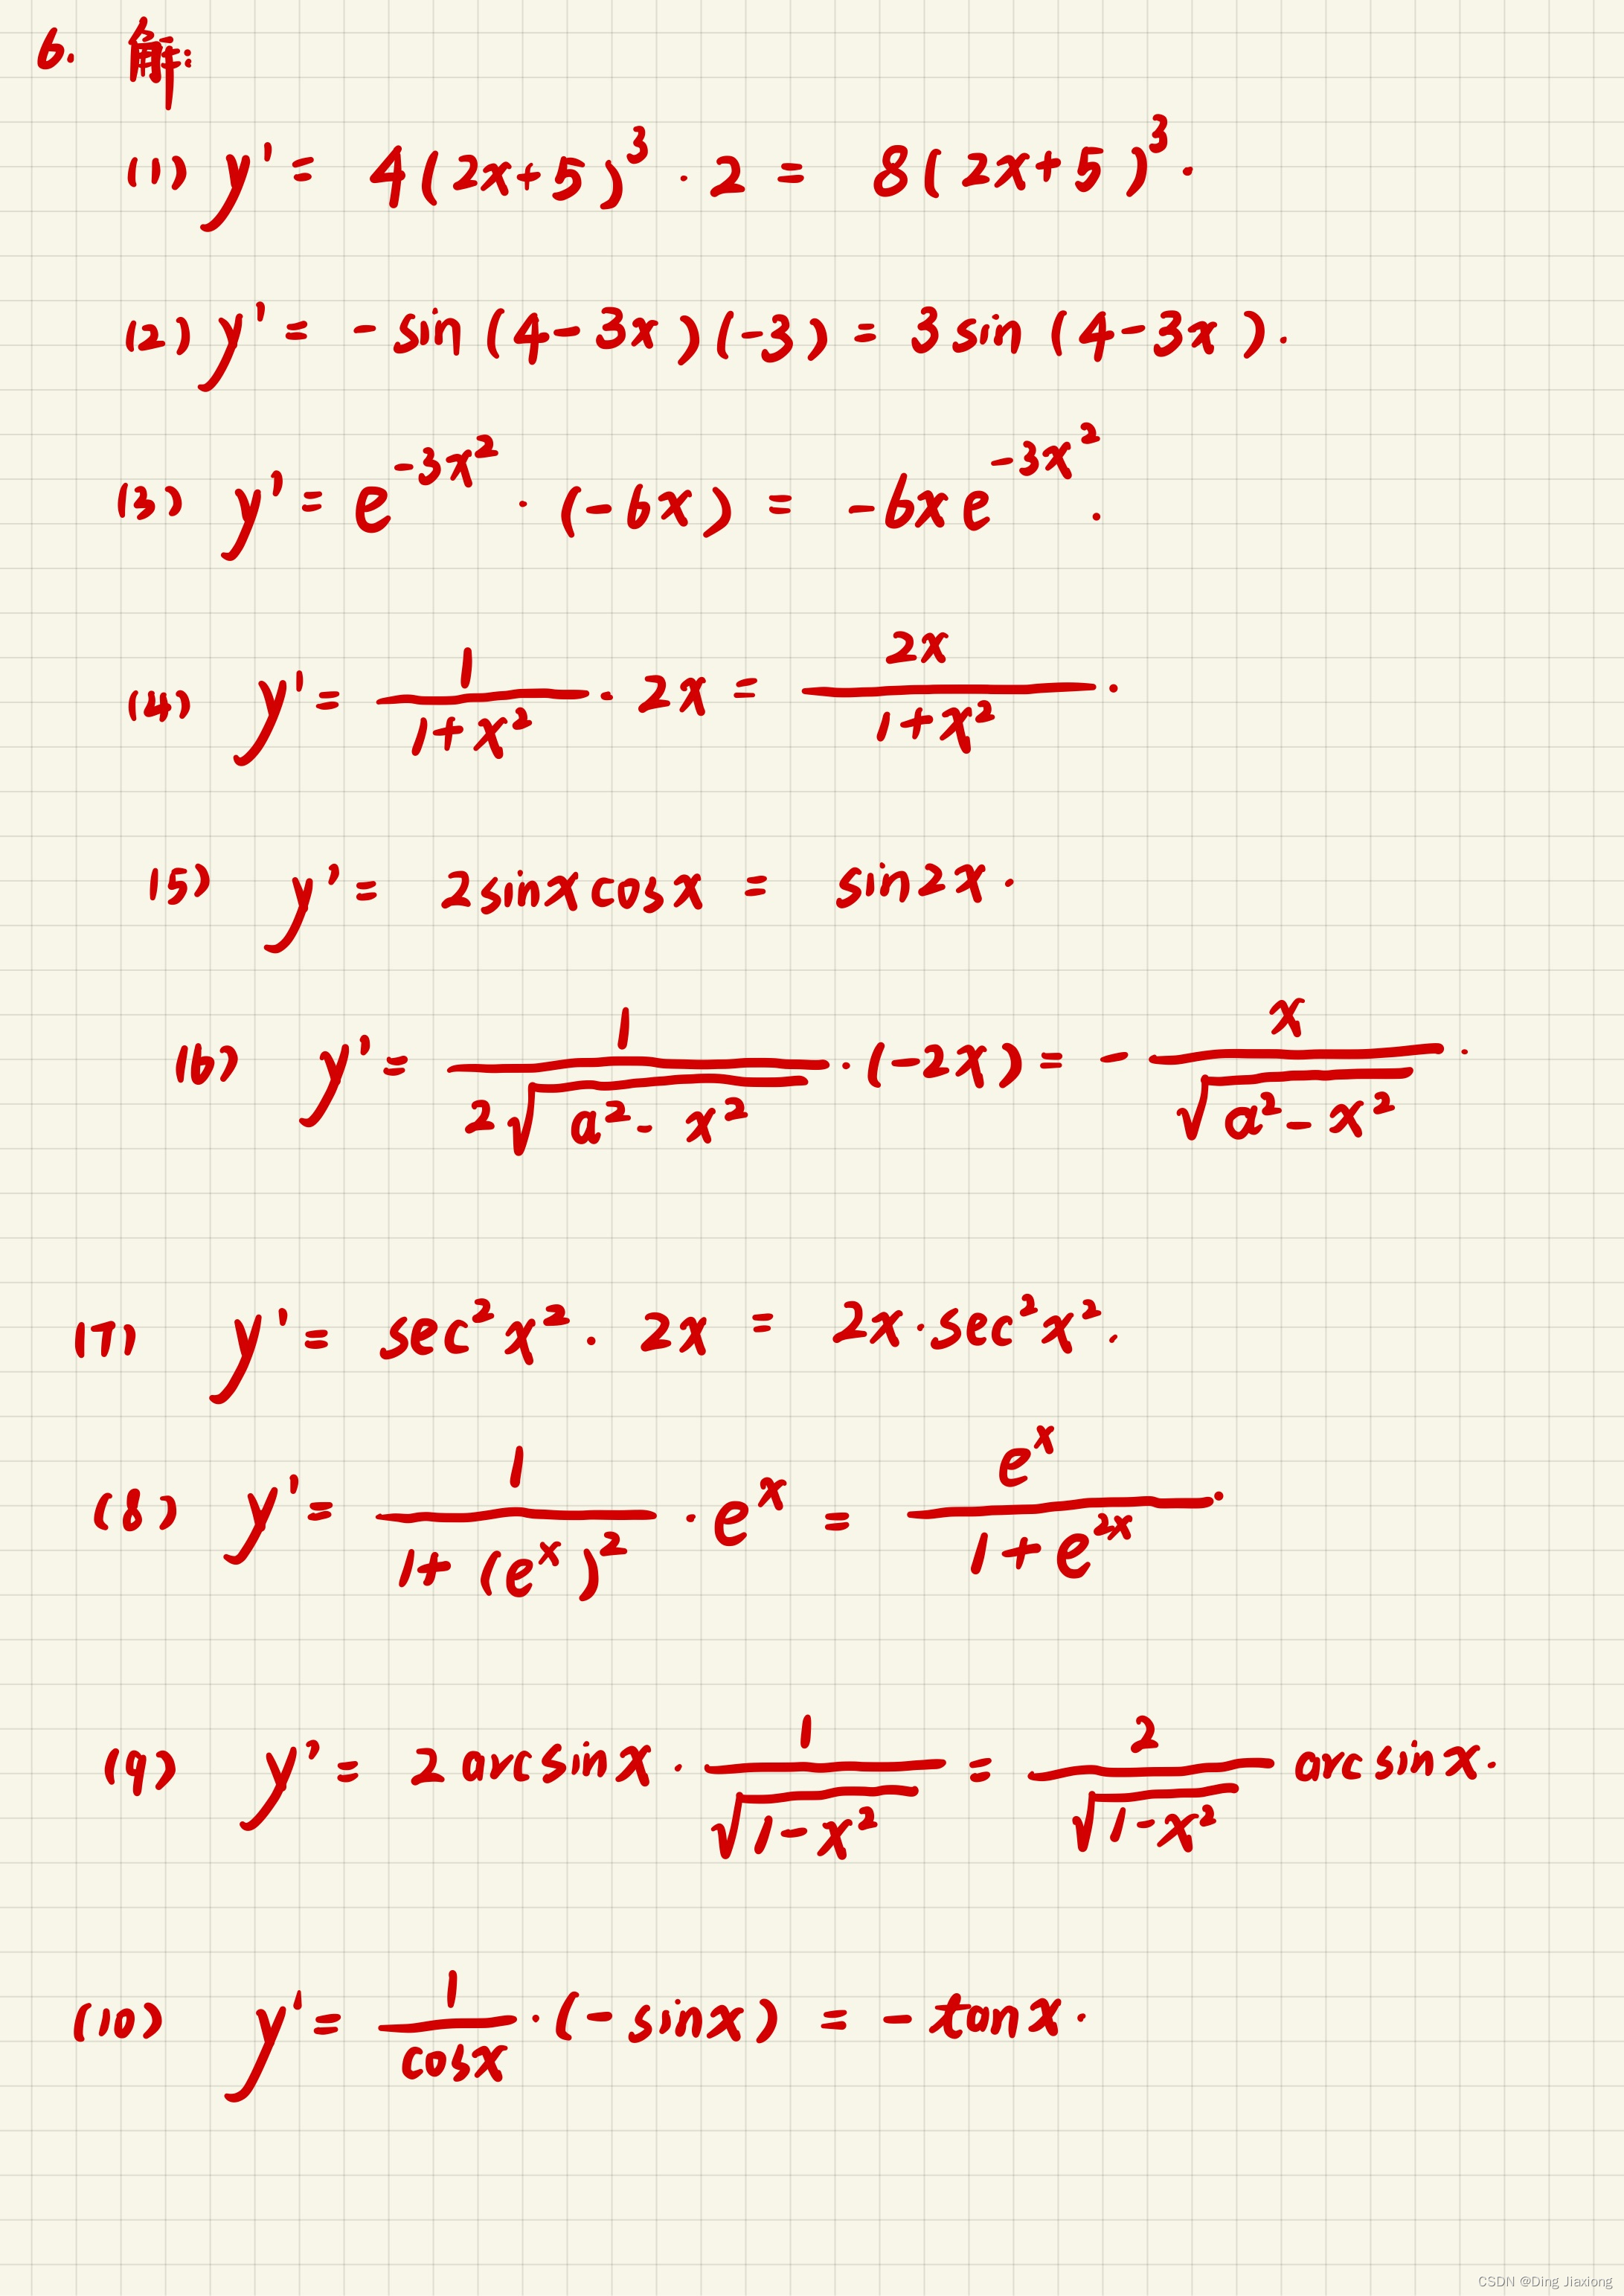 6. 解:
(1) y' = 4(2x+5)³ · 2 = 8(2x+5)³.
(2) y' = -sin(4-3x)(-3) = 3sin(4-3x).
(3) y' = e^{-3x²} · (-6x) = -6xe^{-3x²}.
(4) y' = \frac{1}{1+x²} · 2x = \frac{2x}{1+x²}.
(5) y' = 2sinxcosx = sin2x.
(6) y' = \frac{1}{2\sqrt{a²-x²}} · (-2x) = -\frac{x}{\sqrt{a²-x²}}.
(7) y' = sec²x² · 2x = 2x·sec²x².
(8) y' = \frac{1}{1+(e^x)²} · e^x = \frac{e^x}{1+e^{2x}}.
(9) y' = 2arcsinx · \frac{1}{\sqrt{1-x²}} = \frac{2}{\sqrt{1-x²}} arcsinx.
(10) y' = \frac{1}{cosx} · (-sinx) = -tanx.
CSDN @Ding Jiaxiong